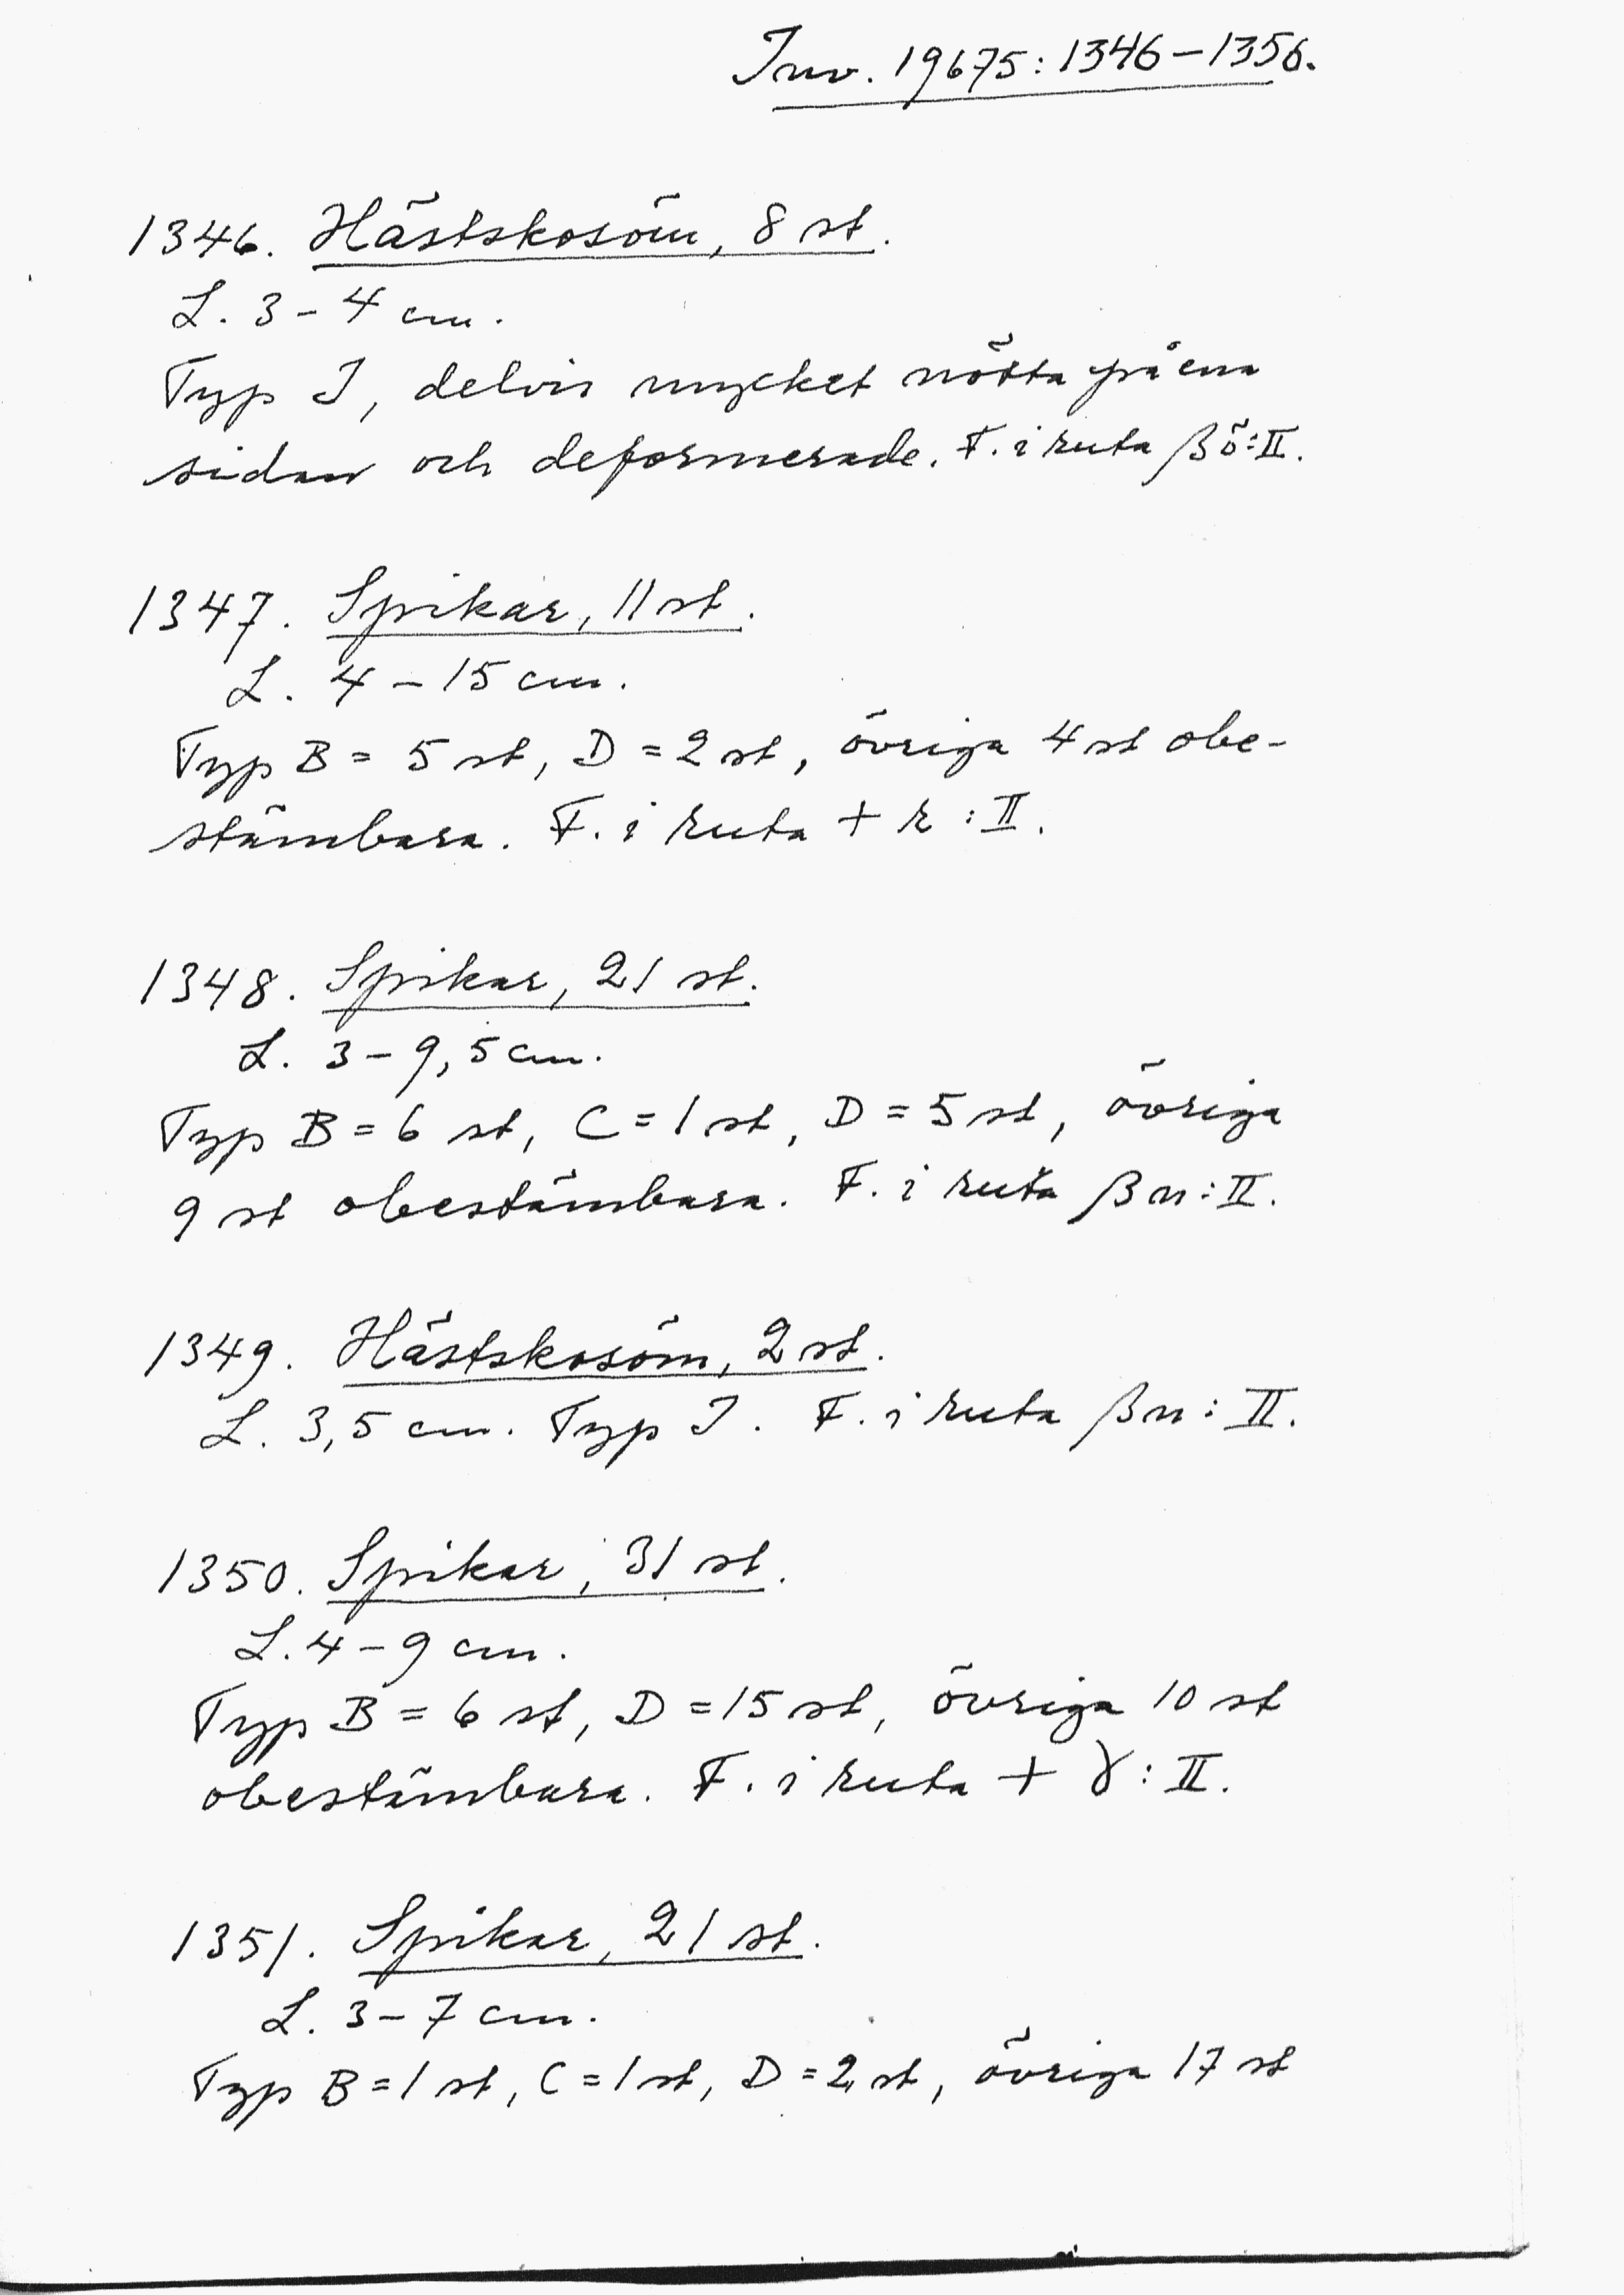 Inv. 19675:1346-1356.
1346. Hästskosöm, 8 st.
L. 3-4 cm.
Typ I, delvis mycket nötta på ena
sidan och deformerade. F. i ruta βö:II.
1347. Spikar, 11 st.
L. 4-15 cm.
Typ B = 5 st, D = 2 st, övriga 4 st obe-
stämbara. F. i ruta + r:II.
1348. Spikar, 21 st.
L. 3-9,5 cm.
Typ B = 6 st, C = 1 st, D = 5 st, övriga
9 st obestämbara. F. i ruta βn:II.
1349. Hästskosöm, 2 st.
L. 3,5 cm. Typ I. F. i ruta βn:II.
1350. Spikar, 31 st.
L. 4-9 cm.
Typ B = 6 st, D = 15 st, övriga 10 st
obestämbara. F. i ruta + γ:II.
1351. Spikar, 21 st.
L. 3-7 cm.
Typ B = 1 st, C = 1 st, D = 2 st, övriga 17 st